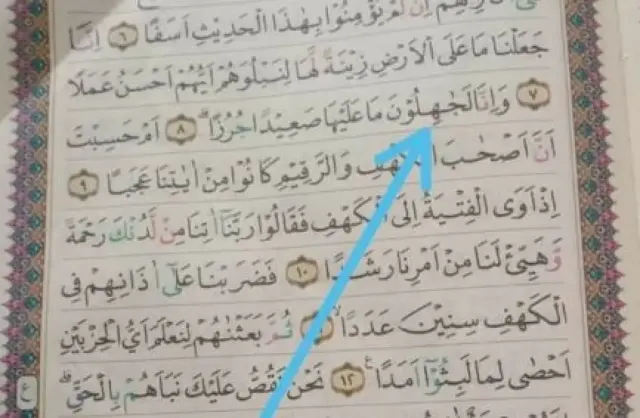 اِنْ لَّمْ يُؤْمِنُوْا بِهٰذَا الْحَدِيْثِ اَسَفًا ٦ اِنَّا
جَعَلْنَا مَا عَلَى الْاَرْضِ زِيْنَةً لَّهَا لِنَبْلُوَهُمْ اَيُّهُمْ اَحْسَنُ عَمَلًا
٧ وَاِنَّا لَجٰهِلُوْنَ مَا عَلَيْهَا صَعِيْدًا جُرُزًاۗ ٨ اَمْ حَسِبْتَ
اَنَّ اَصْحٰبَ الْكَهْفِ وَالرَّقِيْمِ كَانُوْا مِنْ اٰيٰتِنَا عَجَبًا ٩
اِذْ اَوَى الْفِتْيَةُ اِلَى الْكَهْفِ فَقَالُوْا رَبَّنَآ اٰتِنَا مِنْ لَّدُنْكَ رَحْمَةً
وَّهَيِّئْ لَنَا مِنْ اَمْرِنَا رَشَدًا ١٠ فَضَرَبْنَا عَلٰٓى اٰذَانِهِمْ فِى
الْكَهْفِ سِنِيْنَ عَدَدًاۙ ثُمَّ بَعَثْنٰهُمْ لِنَعْلَمَ اَيُّ الْحِزْبَيْنِ
اَحْصٰى لِمَا لَبِثُوْٓا اَمَدًا ࣖ ١٢ نَحْنُ نَقُصُّ عَلَيْكَ نَبَاَهُمْ بِالْحَقِّۗ
ع